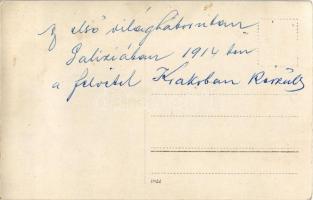 Az első világháborúban
Galiziában 1914 ben
a felvétel Krakoban Készült